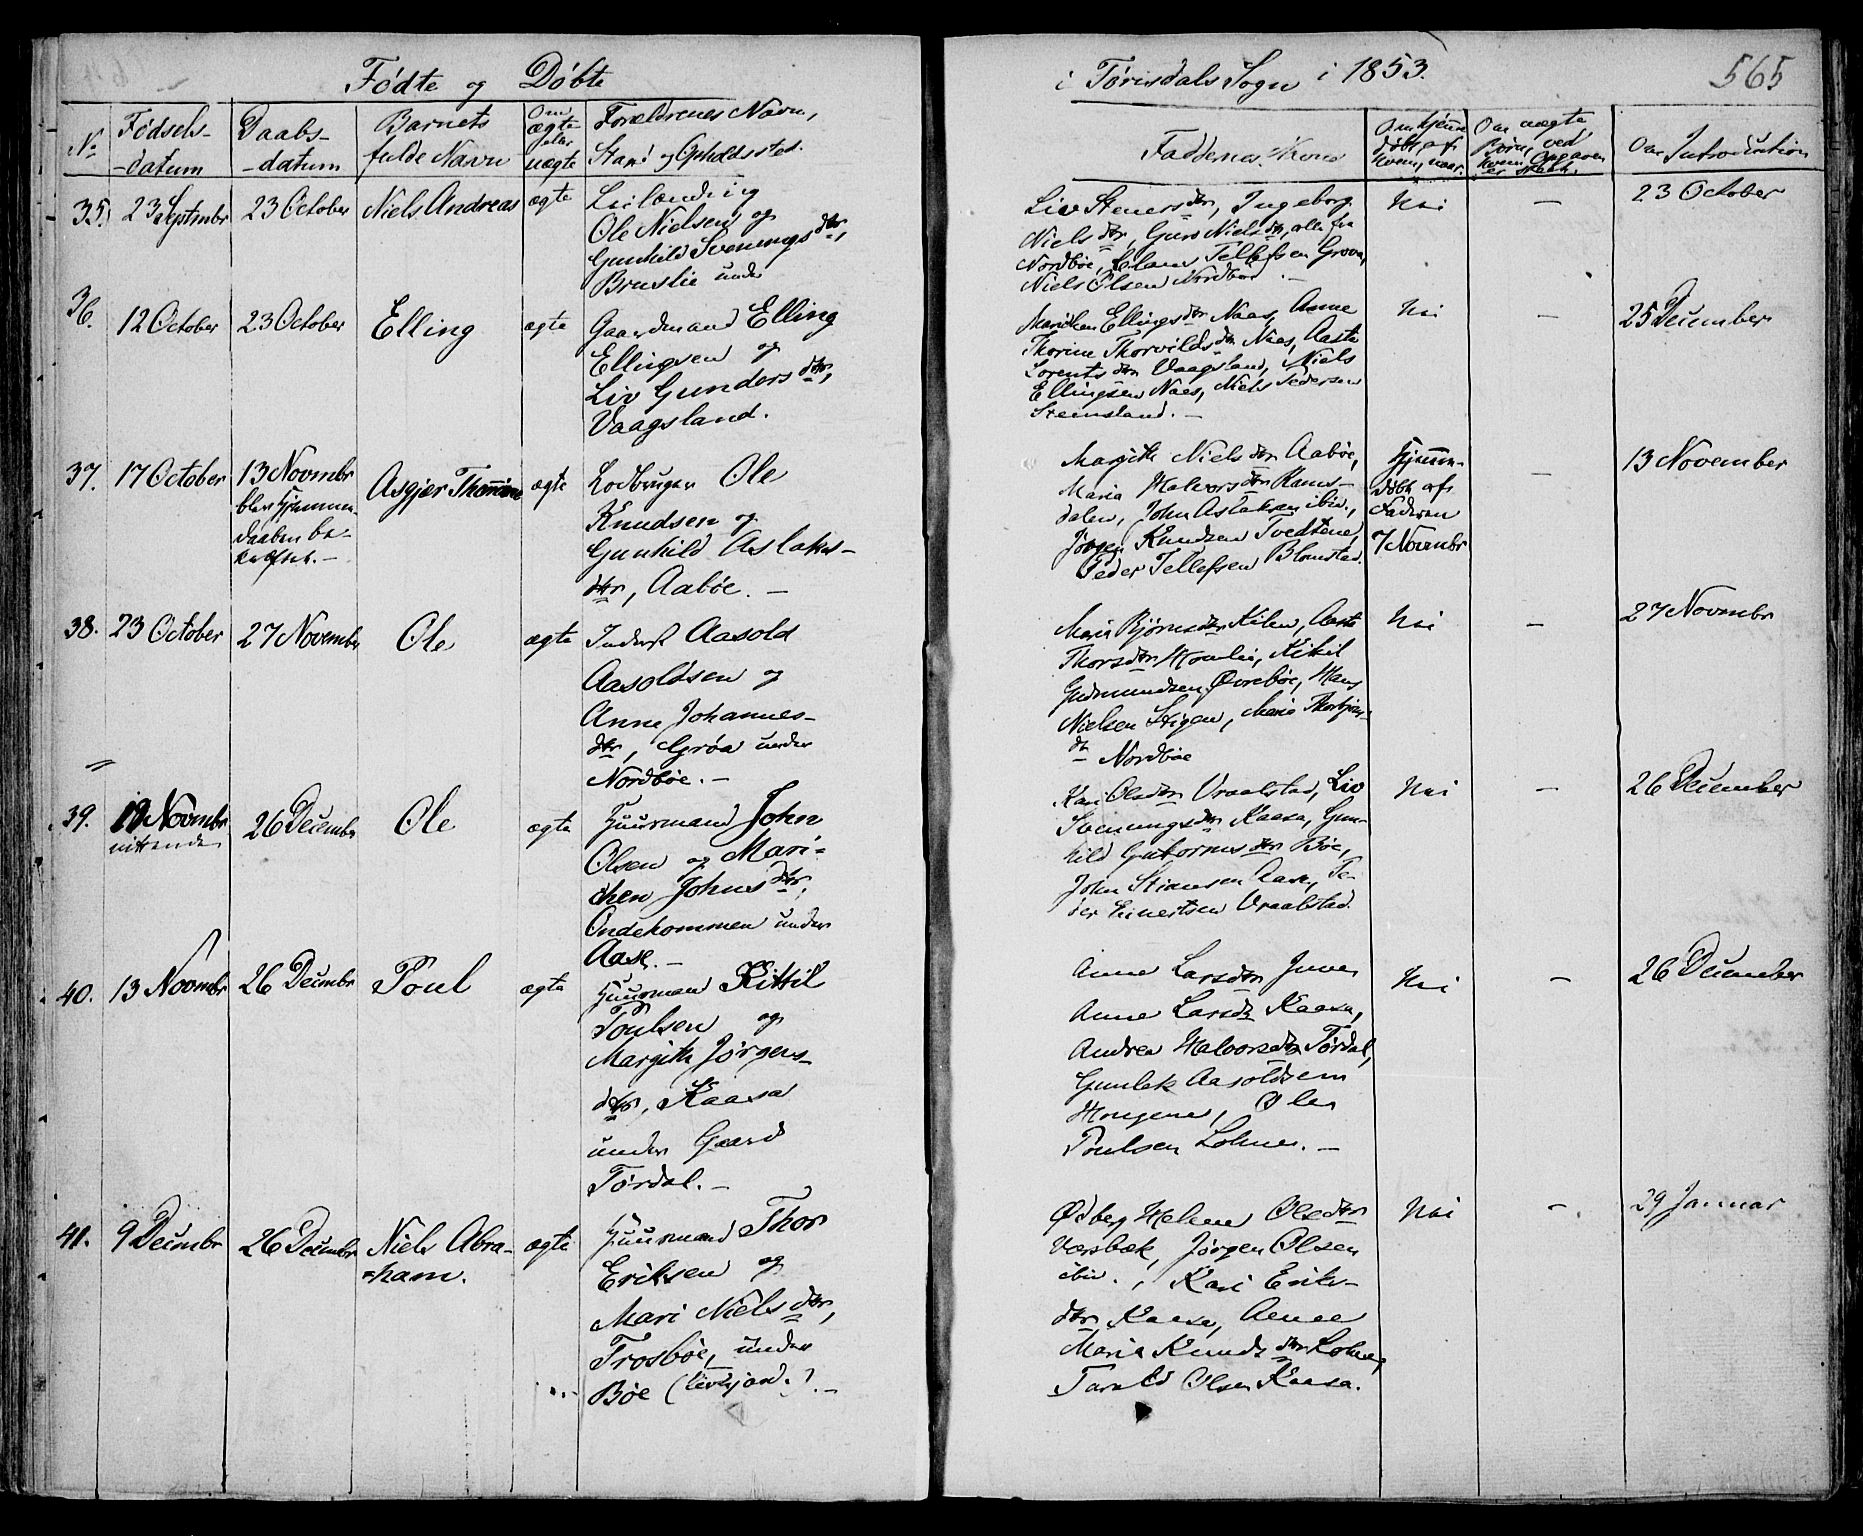 Fødte og Døbte
i Tørisdals Sogn i 1853.
565
No
Fødsels-
-datum
Daabs-
-datum
Barnets
fulde Navn
Om
ægte
eller
uægte
Forældrenes Navn,
Stand og Opholdssted.
Faddernes Navne
Om hjemme
døbt, af
hvem, naar.
Om uægte
Børn, ved
hvem Opgaven
er skeet.
Om Introduction
35.
23 Septembr
23 October
Niels Andreas
ægte
Leilænding
Ole Nielsen og
Gunhild Svenungsdtr,
Bruslie under
Liv Steners dtr, Ingeborg
Niels dtr, Guro Niels dtr, alle fra
Nordbøe, Clam Tellefsen Groven,
Niels Olsen Nordbøe
Nei
—
23 October
36.
12 October
23 October
Elling
ægte
Gaardmand Elling
Ellingsen og
Liv Gunders dtr,
Vaagsland.
Mariken Ellings dtr Naes, Anne
Thorine Thorvilds dtr Naes, Aaste
Lorents dtr Vaagsland, Niels
Ellingsen Naes, Niels Pedersen
Stemsland. —
Nei
—
25 December
37.
17 October
13 Novembr
blev Hjemme-
daaben be-
kræftet. —
Asgjer
ægte
Lodbruger Ole
Knudsen og
Gunhild Aslaks-
dtr, Aabøe. —
Margith Niels dtr Aabøe,
Maria Halvors dtr Rams-
dalen, John Aslaksen ibid.,
Jørgen Knudsen Tvedtene,
Peder Tellefsen Blomstad.
Hjemme-
døbt af
Faderen
7 Novembr
—
13 November
38.
23 October
27 Novembr
Ole
ægte
Inderst Aasold
Aasoldsen og
Anne Johannes-
dtr, Grøa under
Nordbøe. —
Maria Bjørns dtr Kilen, Aaste
Thorsdtr Homlie, Kittil
Gudmundsen Øvrebøe, Hans
Nielsen Stigen, Marie Thorbjøns-
dtr Nordbøe
Nei
—
27 Novembr
39.
19 Novembr
nittende
26 Decembr
Ole
ægte
Huusmand John
Olsen og Mari-
chen Johns dtr,
Ondekommen under
Aase. —
Kari Olsdtr Vraalstad, Liv
Svenungs dtr Kaasa, Gun-
hild Gutorms dtr Bøe,
John Stiansen Aase, Pe-
der Einertsen Vraalstad.
Nei
—
26 December
40.
13 Novembr
26 Decembr
Poul
ægte
Huusman Kittil
Poulsen og
Margith Jørgens-
dtr, Kaasa
under Gaard
Tørdal. —
Anne Larsdtr Juven
Anne Larsdtr Kaasa,
Andrea Halvorsdtr Tørdal,
Gunlek Aasoldsen
Hougene, Ole
Poulsen Lohne. —
Nei
—
26 December
41.
9 Decembr
26 Decembr
Niels Abra-
=ham.
ægte
Huusmand Thor
Eriksen og
Mari Niels dtr,
Trosbøe, under
Bøe
Ødberg Helene Olsdtr
Værsbæk, Jørgen Olsen
ibid., Kari Eriks-
dtr Kaasa, Anne
Maria Knuds dtr Lohne,
Tarald Olsen Kaasa.
Nei
—
29 Januar